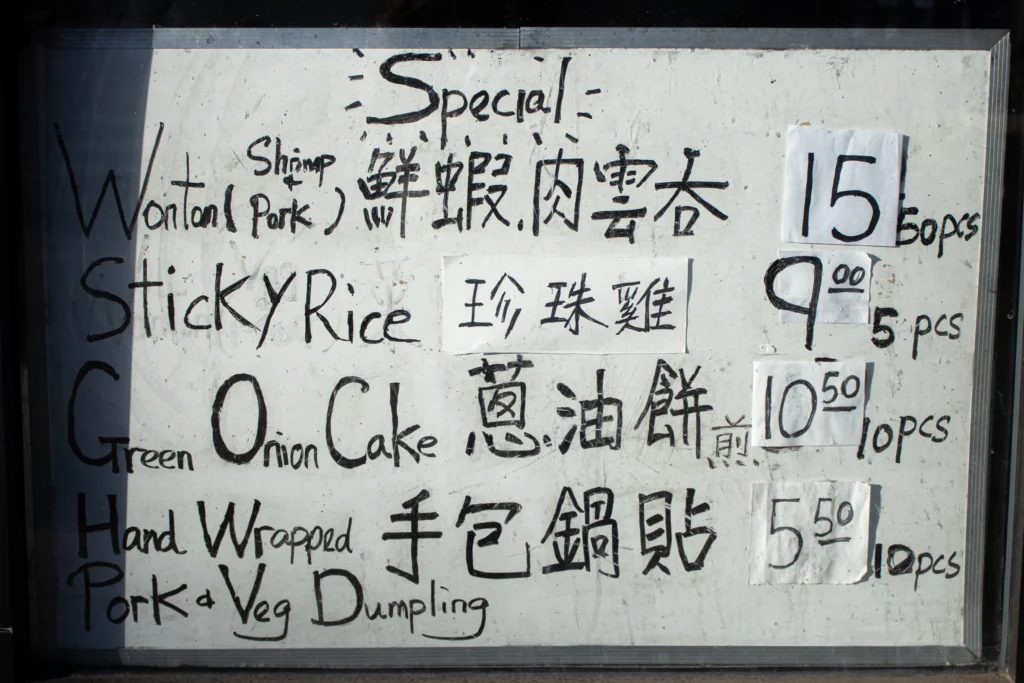 Special
Wonton (Shrimp + Pork) 鮮蝦.肉雲吞 15 50pcs
Sticky Rice 珍珠雞 9.00 5 pcs
Green Onion Cake 蔥油餅 煎 10.50 10pcs
Hand Wrapped 手包鍋貼 5.50 10pcs
Pork & Veg Dumpling